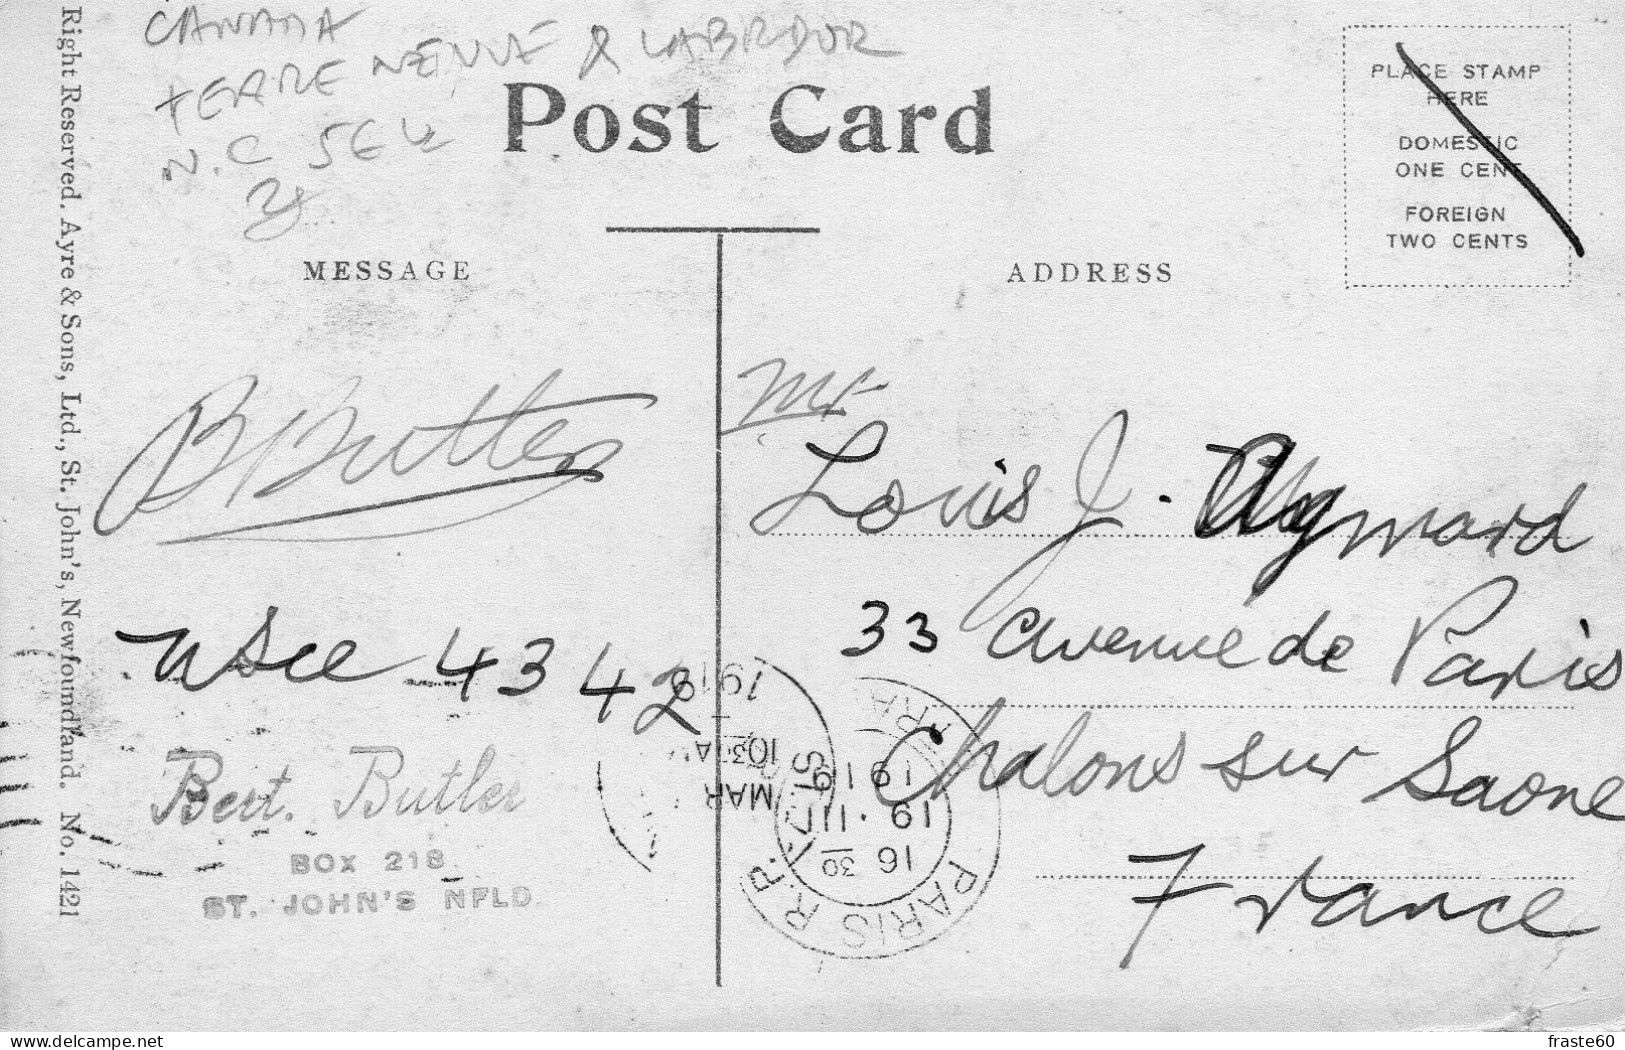 CANADA
TERRE NEUVE & LABRADOR
N.C 5E
Post Card
PLACE STAMP
HERE
DOMESTIC
ONE CENT
FOREIGN
TWO CENTS
MESSAGE
ADDRESS
B Butler
Mr
Louis J. Aymard
33 avenue de Paris
Chalons sur Saone
France
4342
Bert. Butler
BOX 218
ST. JOHN'S NFLD.
1919
1030 A
MAR
ST. J
PARIS R.P.
16 30
19 · III
19
Right Reserved. Ayre & Sons, Ltd., St. John's, Newfoundland. No. 1421
delcampe.net
fraste60